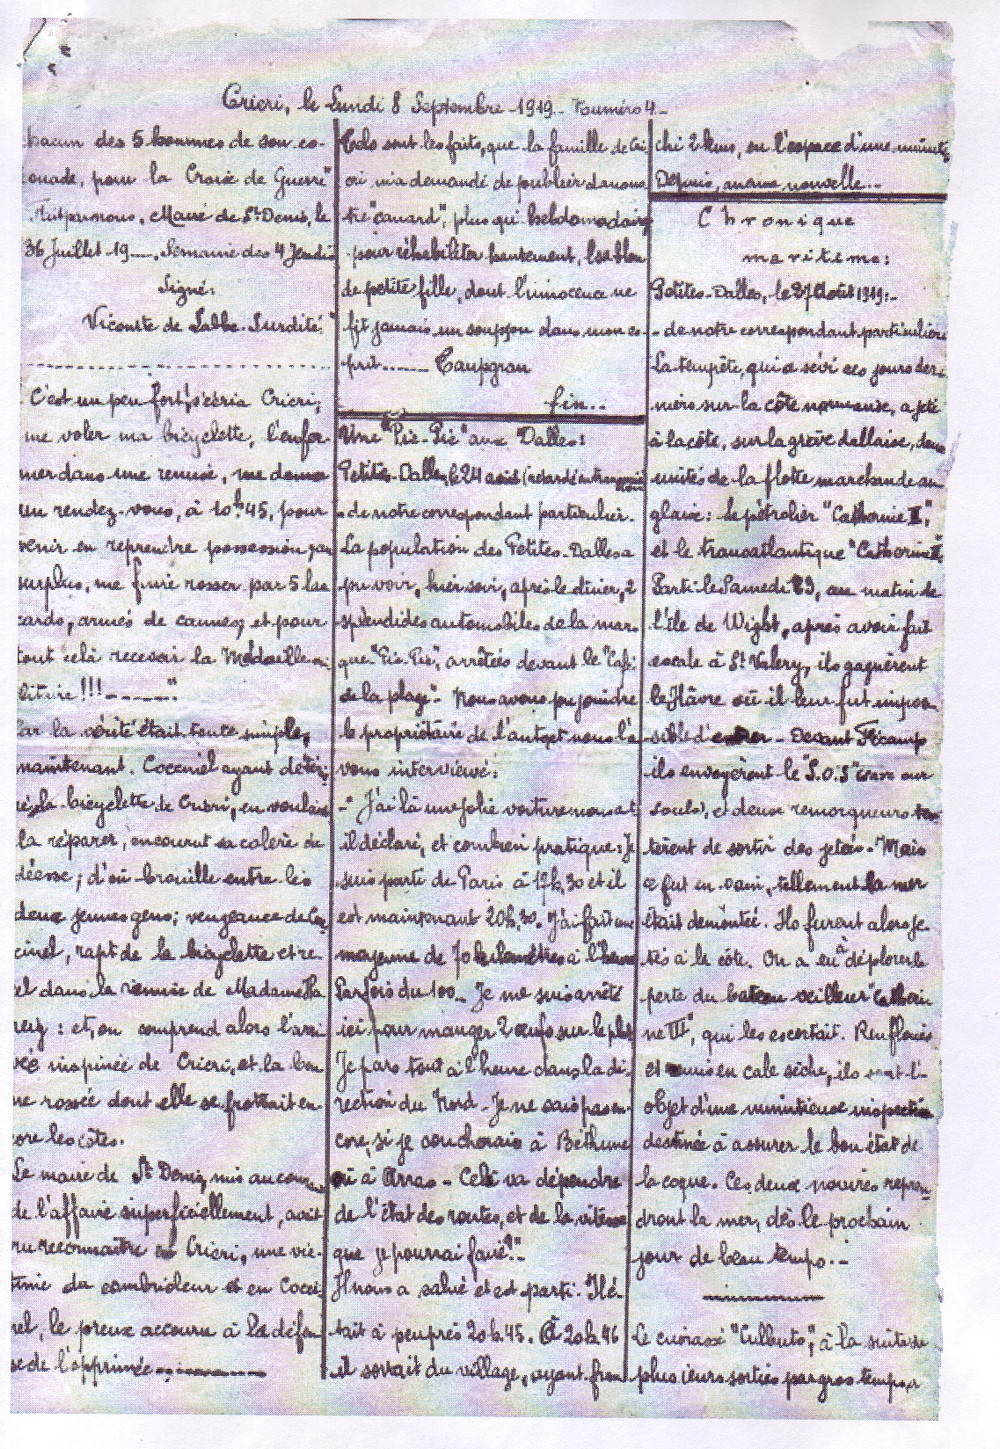 Crieri, le Lundi 8 Septembre 1919.- Numéro 4-
hacun des 5 hommes de son es-
ouade, pour la Croix de Guerre"
Maire de St Denis, le
36 Juillet 19__, Semaine des 4 Jeudis
Signé:
Vicomte de Labbe-Surdité."
C'est un peu fort! s'écria Crieri;
me voler ma bicyclette, l'enfer-
mer dans une remise, me donner
un rendez-vous, à 10h45, pour
venir en reprendre possession, au
surplus, me faire rosser par 5 las
cards, armés de cannes; et pour
tout celà recevoir la Médaille mi
litaire!!!------"
Car la vérité était toute simple,
maintenant. Coccinel ayant déter
la bicyclette de Crieri, en voulant
la réparer, encourut sa colère de
déesse; d'où brouille entre les
deux jeunes gens; vengeance de Coc
cinel, rapt de la bicyclette et re
el dans la remise de Madame Ha
: et, on comprend alors l'arri
vée inopinée de Crieri, et la bon
ne rossée dont elle se frottait en-
core les côtes.
Le maire de St Denis, mis au courant
de l'affaire superficiellement, avait
cru reconnaître en Crieri, une vic-
time du cambrioleur et en Cocci
nel, le preux accouru à la défen
se de l'opprimée--------
Tels sont les faits, que la famille de Cri
eri m'a demandé de publier dans no
tre "canard", plus qu'hebdomadaire
pour réhabiliter hautement, l'
de petite fille, dont l'innocence ne
fit jamais un soupçon dans mon es-
prit------ Taupgran
fin...
Une "Pic-Pic" aux Dalles:
Petites-Dalles, le 24 août (retardé en transmission)
- de notre correspondant particulier.
La population des Petites-Dalles a
pu voir, hier soir, après le dîner, 2
splendides automobiles de la mar-
que "Pic-Pic", arrêtées devant le "Café
de la plage". Nous avons pu joindre
le propriétaire de l'auto, et nous l'a
vons interviewé:
-"J'ai là une jolie voiture nous a-t
il déclaré, et combien pratique: Je
suis parti de Paris à 17h,30 et il
est maintenant 20h,30. J'ai fait une
moyenne de 70 kilomètres à l'heure
Parfois du 100.. Je me suis arrêté
ici pour manger 2 oeufs sur le plat
Je pars tout à l'heure dans la di-
rection du Nord- Je ne sais pas en-
core, si je coucherais à Béthune
où à Arras- Celà va dépendre
de l'état des routes, et de la vitesse
que je pourrai faire!"-
Il nous a salué et est parti. Il é-
tait à peu près 20h.45. A 20h.46
il sortait du village, ayant fran
chi 2 kms, en l'espace d'une minute
Depuis, aucune nouvelle...
Chronique
maritime:
Petites-Dalles, le 27 Août 1919:-
- de notre correspondant particulier-
La tempête, qui a sévi ces jours der-
niers sur la côte normande, a jeté
à la côte, sur la grève dallaise, deux
unités de la flotte marchande an
glaise: le pétrolier "Catherine II",
et le transatlantique "Catherine I"
Parti le Samedi 23, au matin de
l'île de Wight, après avoir fait
escale à St Valery, ils gagnèrent
le Hâvre où il leur fut impos
sible d'entrer- Devant Fécamp
ils envoyèrent le "S.O.S" (save our
souls), et deux remorqueurs ten-
tèrent de sortir des jetées- Mais
ce fut en vain, tellement la mer
était démontée. Ils furent alors je-
tés à la côte. On a eu à déplorer la
perte du bateau veilleur "Catheri
ne III", qui les escortait. Renfloués
et remis en cale sèche, ils sont l'-
objet d'une minutieuse inspection
destinée à assurer le bon état de
la coque. Ces deux navires repren-
dront la mer, dès le prochain
jour de beau temps.-
Le cuirassé "Culbuto", à la suite de
plusieurs sorties par gros temps, a